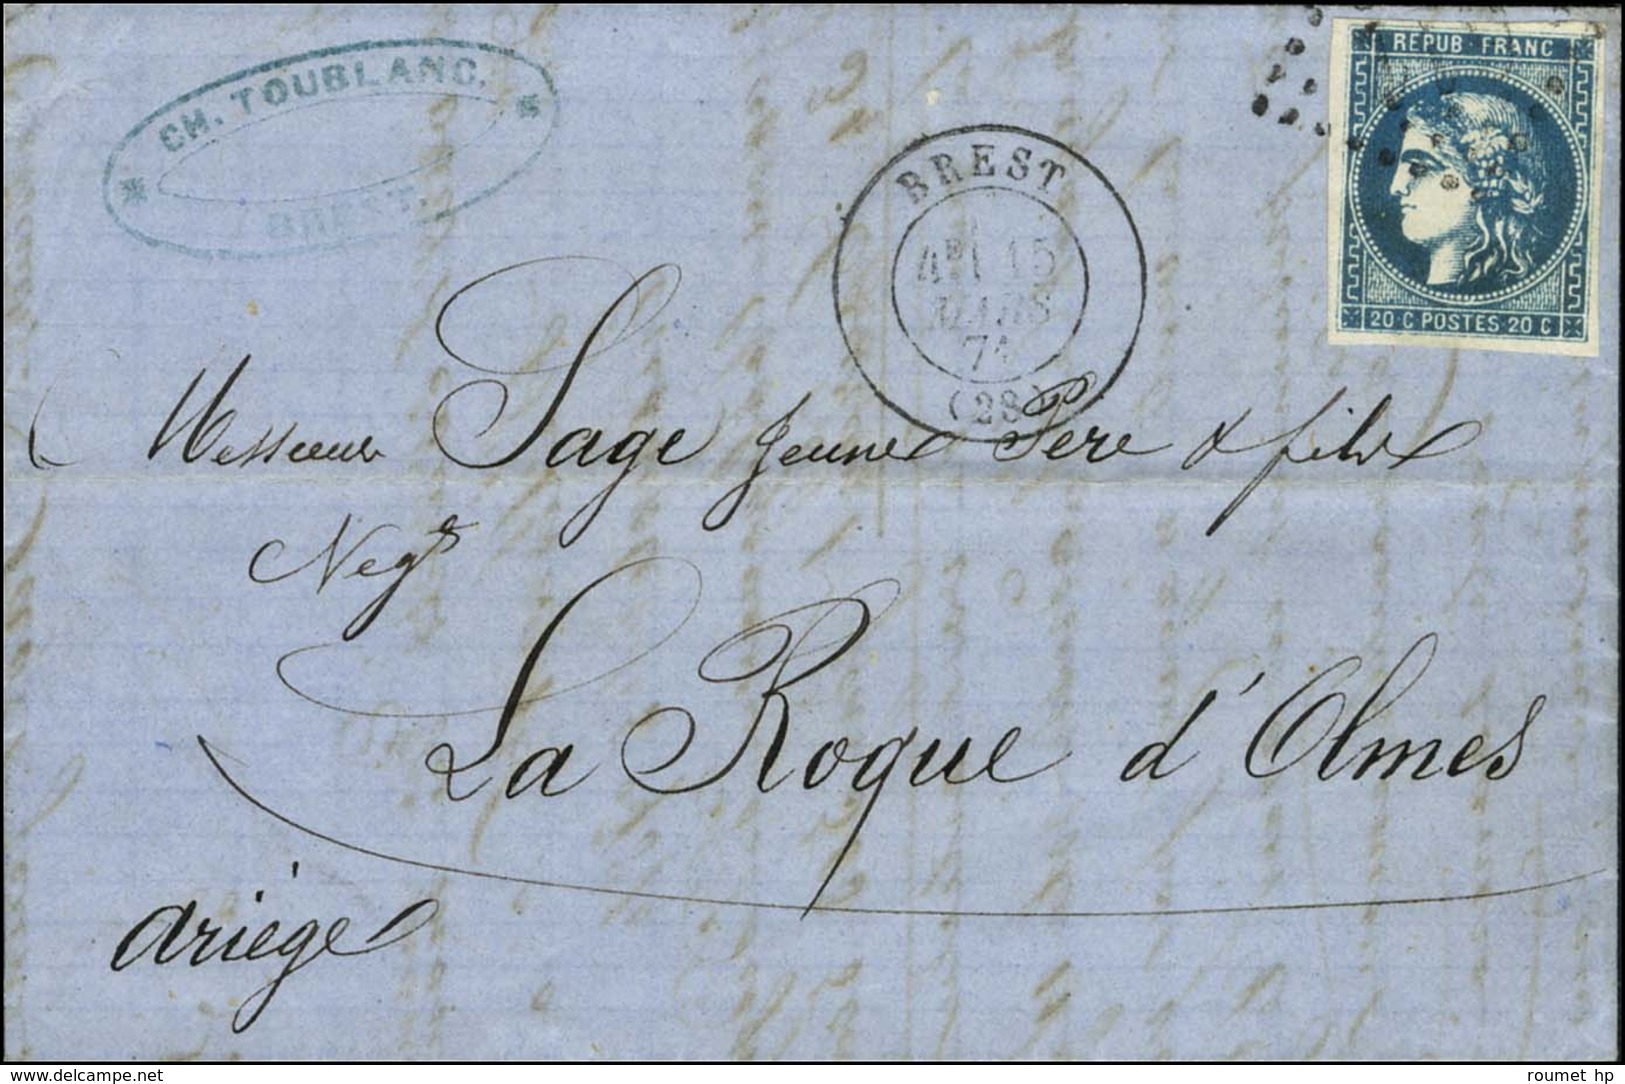 CH. TOUBLANC.
BREST.
BREST
15
MARS
71
(28)
REPUB. FRANC
20 C POSTES 20 C
Messieurs Sage Jeune Père & fils
Negts
La Roque d'Olmes
Ariège
delcampe.net
roumet hp